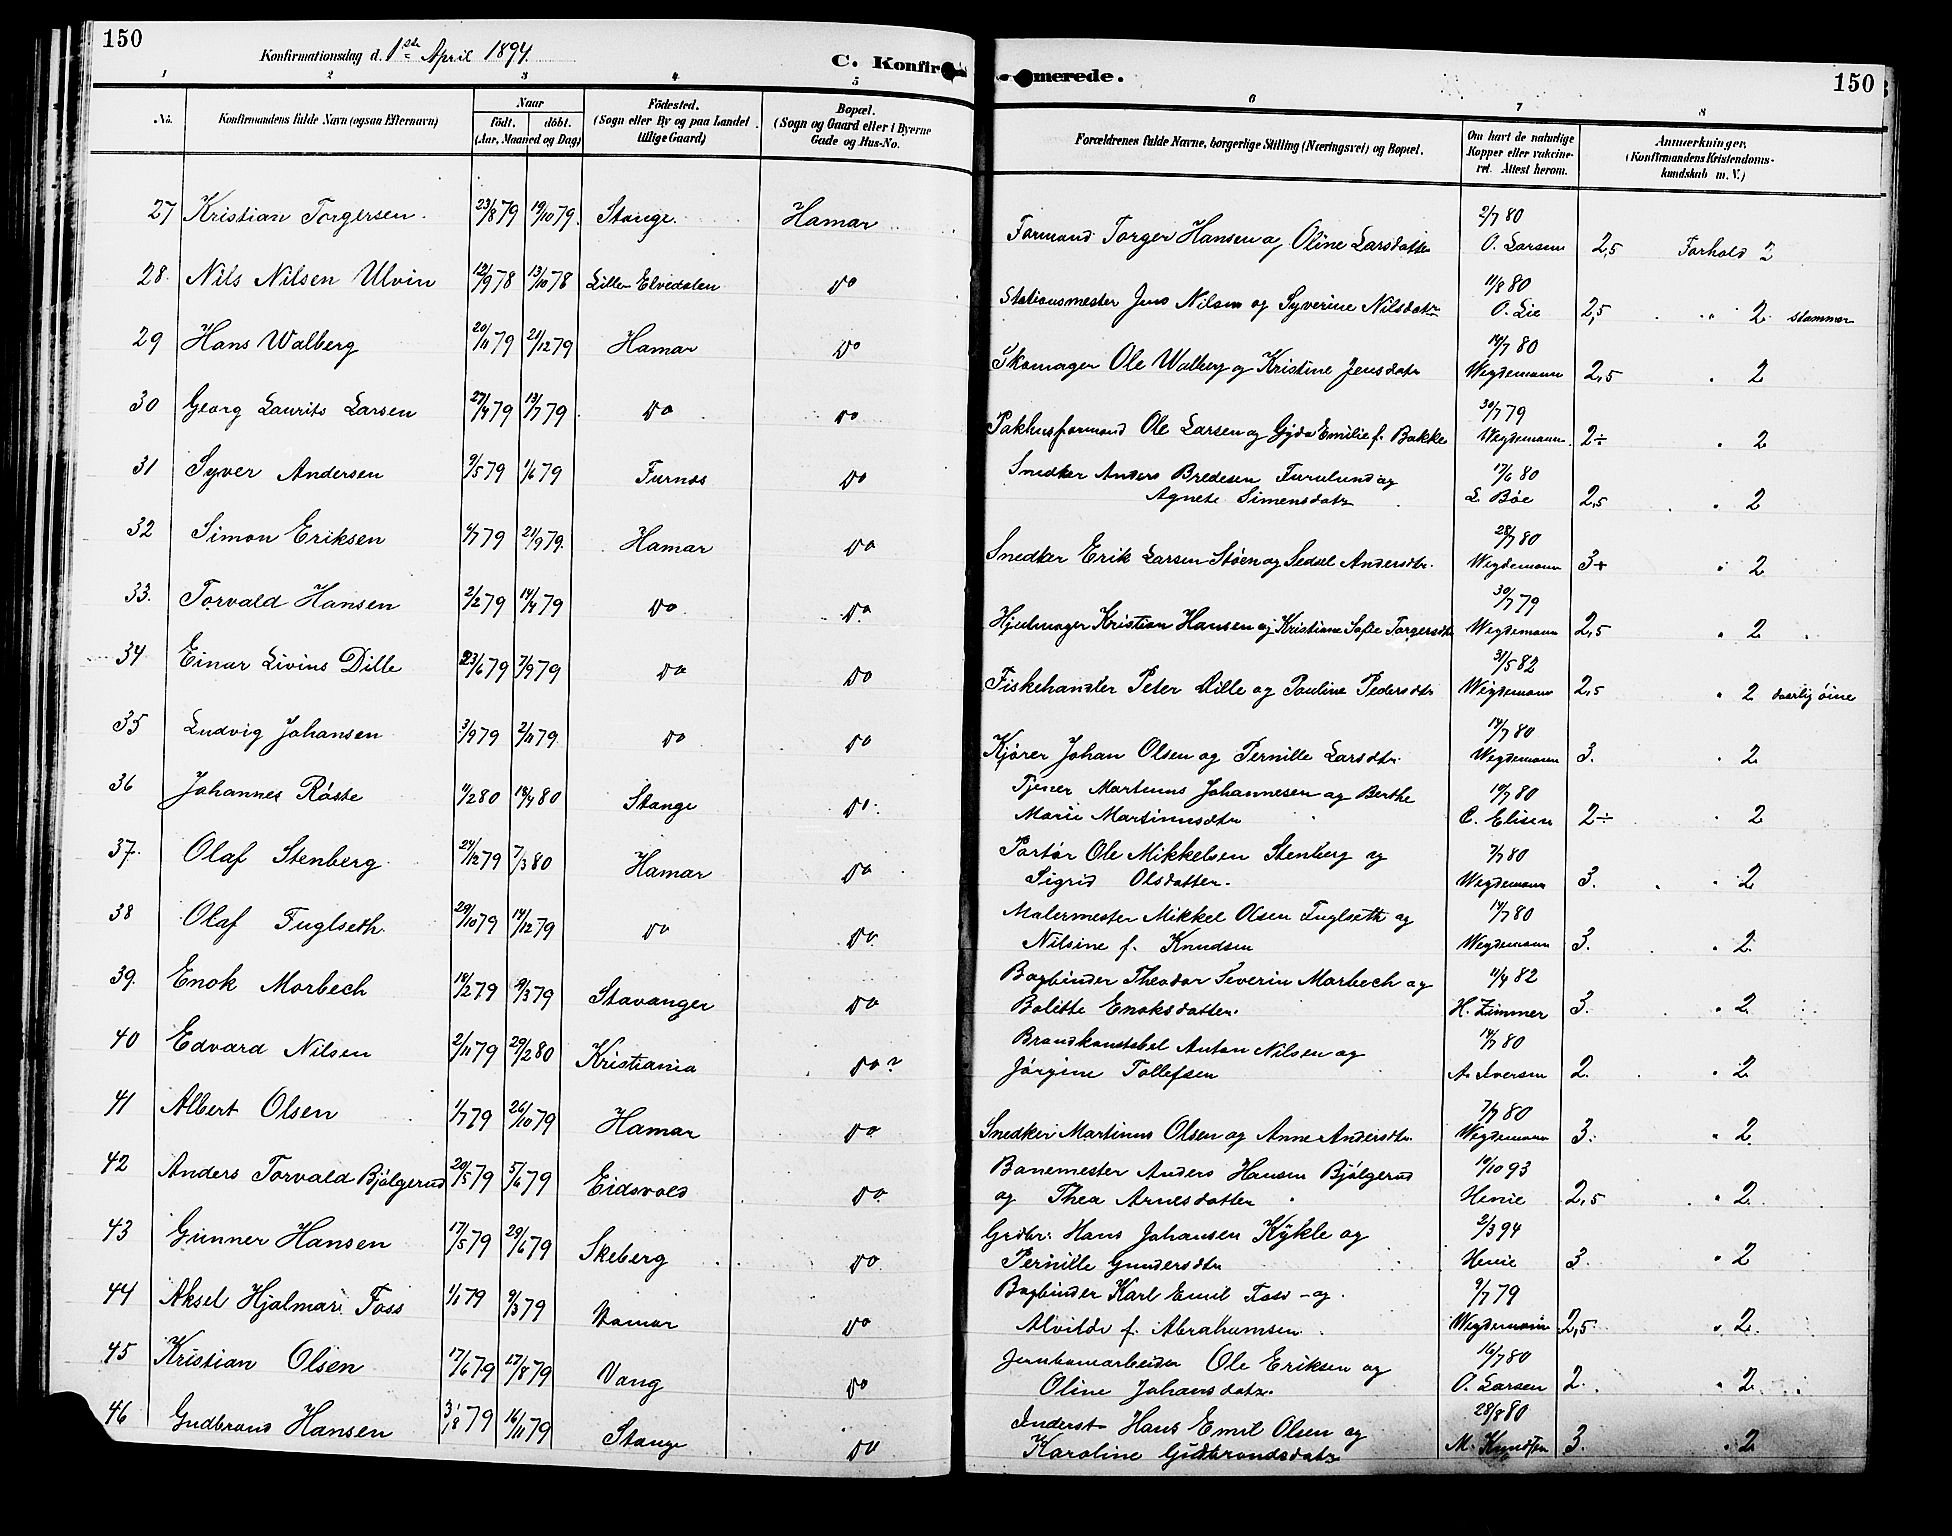 150
Konfirmationsdag d. 1ste April 1894.
C. Konfir merede.
150
1 2 3 4 5 6 7 8
No. Konfirmandens fulde Navn (ogsaa Efternavn) Naar født. døbt. (Aar, Maaned og Dag) Fødested. (Sogn eller By og paa Landet tillige Gaard) Bopæl. (Sogn og Gaard eller i Byerne Gade og Hus-No. Forældrenes fulde Navne, borgerlige Stilling (Næringsvei) og Bopæl. Om havt de naturlige Kopper eller vakcineret. Attest herom. Anmærkninger. (Konfirmandens Kristendomskundskab m. V.)
27 Kristian Torgersen. 23/8 79 19/10 79. Stange. Hamar Formand Torger Hansen og Oline Larsdatter 2/7 80 O. Larsen 2,5 Forhold 2
28. Nils Nilsen Ulvin 12/9 78 13/10 78 Lille-Elvedalen Do Stationsmester Jens Nilsen og Syverine Nilsdatr 11/8 80 O. Lie 2,5 " 2 stammer
29 Hans Walberg 20/11 79 21/12 79 Hamar Do Skomager Ole Walberg og Kristine Jensdatr 14/7 80 Wegdemann 2,5 " 2
30 Georg Laurits Larsen 27/4 79 13/7 79 Do Do Pakhusformand Ole Larsen og Gyda Emilie f. Bakke 30/7 79 Wegdemann. 2÷ " 2
31 Syver Andersen 9/5 79 1/6 79 Furnes Do Snedker Anders Bredesen Furulund og
Agnete Simensdatr 17/6 80 L. Bøe 2,5 " 2
32 Simon Eriksen 4/7 79 21/9 79. Hamar Do Snedker Erik Larsen Støen og Sedsel Andersdtr. 28/7 80 Wegdemann 3+ " 2
33. Torvald Hansen 2/2 79 14/4 79 Do Do. Hjulmager Kristian Hansen og Kristiane Sofie Torgersdtr 30/7 79 Wegdemann 2,5 " 2
34 Einar Livius Dille 23/6 79 7/9 79 Do Do Fiskehandler Peter Dille og Pauline Pedersdtr 31/5 82 Wegdemann 2,5 " 2 daarlig øine
35 Ludvig Johansen 3/9 79 2/11 79. Do Do Kjører Johan Olsen og Pernille Larsdtr. 14/7 80 Wegdemann 3. " 2
36 Johannes Røste 11/2 80 18/4 80 Stange Do. Tjener Martinus Johannesen og Berthe
Marie Martinusdtr 19/7 80 C. Elisen 2÷ " 2
37. Olaf Stenberg 24/12 79 7/3 80 Hamar Do Portør Ole Mikkelsen Stenberg og
Sigrid Olsdatter. 7/7 80 Wegdemann 3. " 2
38 Olaf Fuglseth. 29/10 79 14/12 79 Do Do Malermester Mikkel Olsen Fuglseth og
Nilsine f. Knudsen 14/7 80 Wegdemann 3. " 2.
39. Enok Morbech 18/2 79 19/3 79 Stavanger Do Bogbinder Theodor Severin Morbech og
Bolitte Enoksdatter. 11/4 82 H. Zimmer 3. " 2
40 Edvard Nilsen 2/11 79 29/2 80 Kristiania Do? Brandkonstabel Anton Nilsen og
Jørgine Tollefsen 14/7 80 A. Iversen 2. " 2
41 Albert Olsen 1/7 79 26/10 79 Hamar Do Snedker Martinus Olsen og Anne Andersdtr. 7/7 80 Wegdemann 3. " 2
42 Anders Torvald Bjølgerud 20/5 79 5/6 79 Eidsvold Do. Banemester Anders Hansen Bjølgerud
og Thea Arnesdatter 10/10 93 Henie 2,5 " 2.
43 Gunner Hansen 17/5 79 29/6 79 Skeberg Do Grdbr. Hans Johansen Kykle og
Pernille Gundersdtr 2/3 94 Henie 3 " 2
44 Aksel Hjalmar Foss 1/1 79 9/3 79 Hamar Do Bogbinder Karl Emil Foss - og
Alvilde f. Abrahamsen. 9/7 79 Wegdemann 2,5 " 2
45 Kristian Olsen 17/6 79 17/8 79 Vang Do Jernbanearbeider Ole Eriksen og
Oline Johansdatr. 16/7 80 O. Larsen 2. " 2
46 Gudbrand Hansen 31/8 79 16/11 79 Stange Do Inderst Hans Emil Olsen og
Karoline Gudbrandsdatr 28/8 80 M. Knudsen 3. " 2